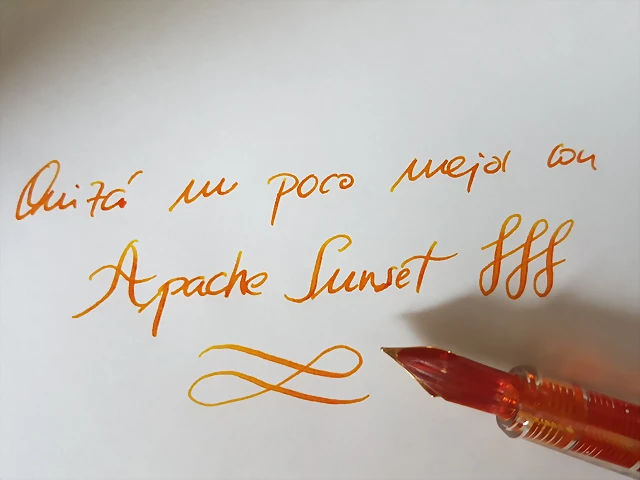 Quizá un poco mejor con
Apache Sunset fff